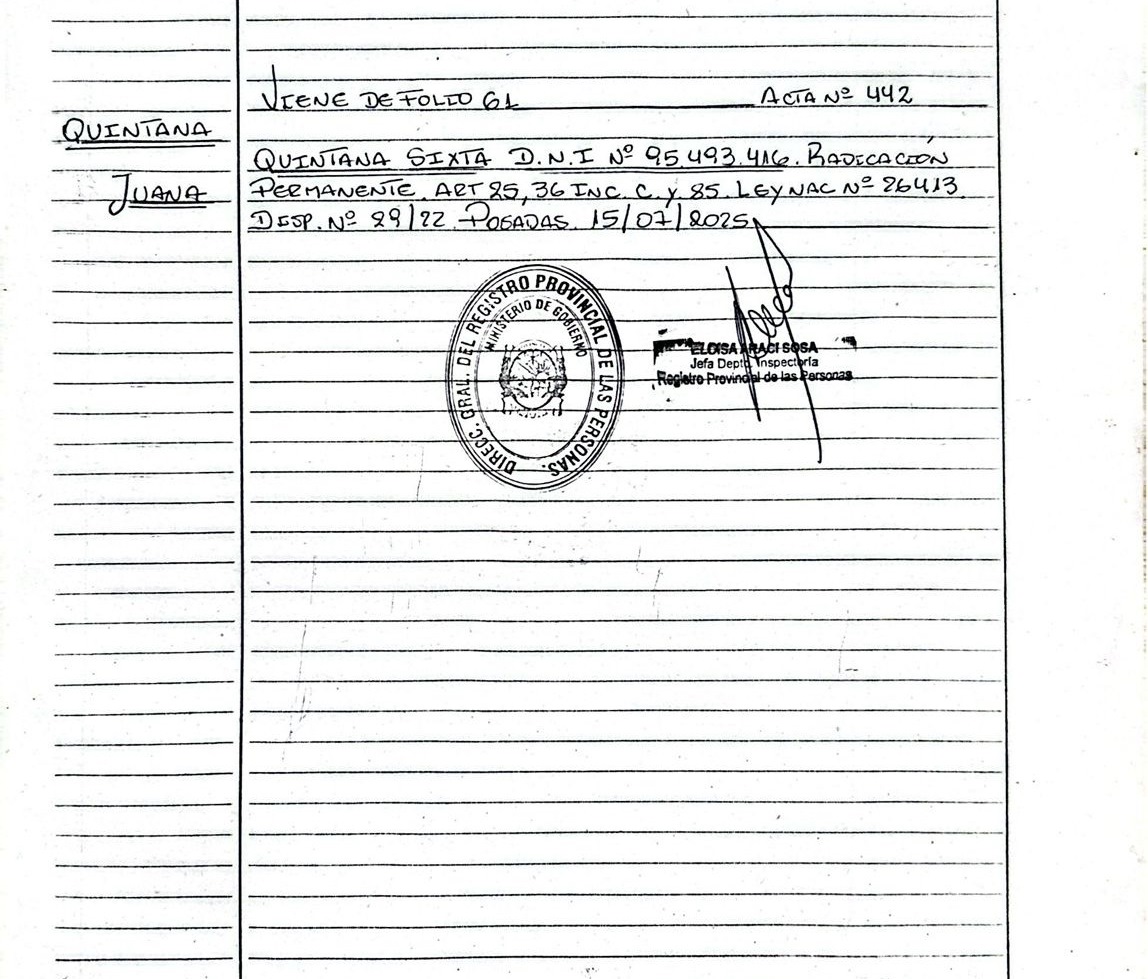 VIENE DE FOLIO 61 ACTA Nº 442
QUINTANA
QUINTANA SIXTA D.N.I Nº 95.493.416. RADICACIÓN
JUANA
PERMANENTE. ART 25, 36 INC. C. y 85. LEY NAC Nº 26413.
DISP. Nº 29/22. POSADAS. 15/07/2025
DIRECC. GRAL. DEL REGISTRO PROVINCIAL DE LAS PERSONAS.
MINISTERIO DE GOBIERNO
ELOISA ARACI SOSA
Jefa Depto. Inspectoría
Registro Provincial de las Personas